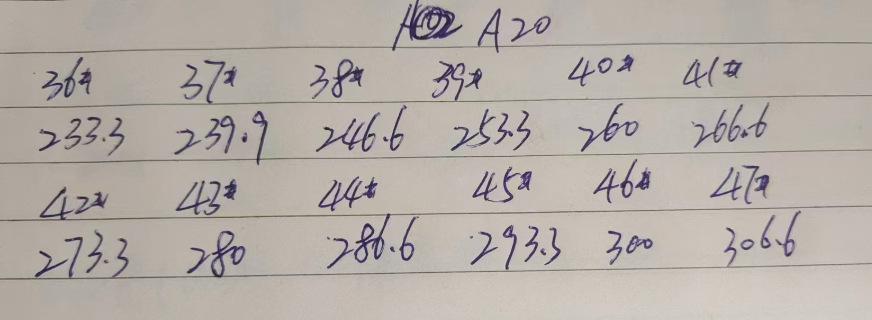 A20
36# 37# 38# 39# 40# 41#
233.3 239.9 246.6 253.3 260 266.6
42# 43# 44# 45# 46# 47#
273.3 280 286.6 293.3 300 306.6